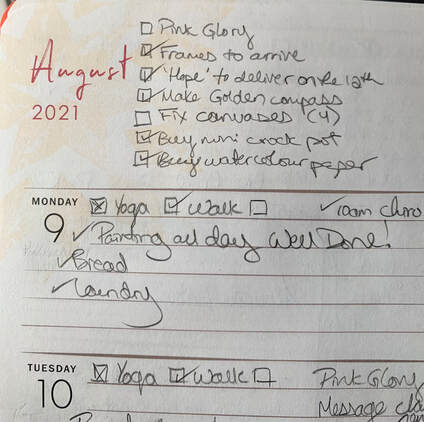 Pink Glory
Frames to arrive
'Hope' to deliver on the 12th
August
Make Golden compass
2021
Fix canvases (4)
Buy mini crock pot
Buy watercolour paper
MONDAY
9
Yoga Walk 10am chiro
Painting all day Well Done!
Bread
Laundry
TUESDAY
10
Yoga Walk Pink Glory
Message